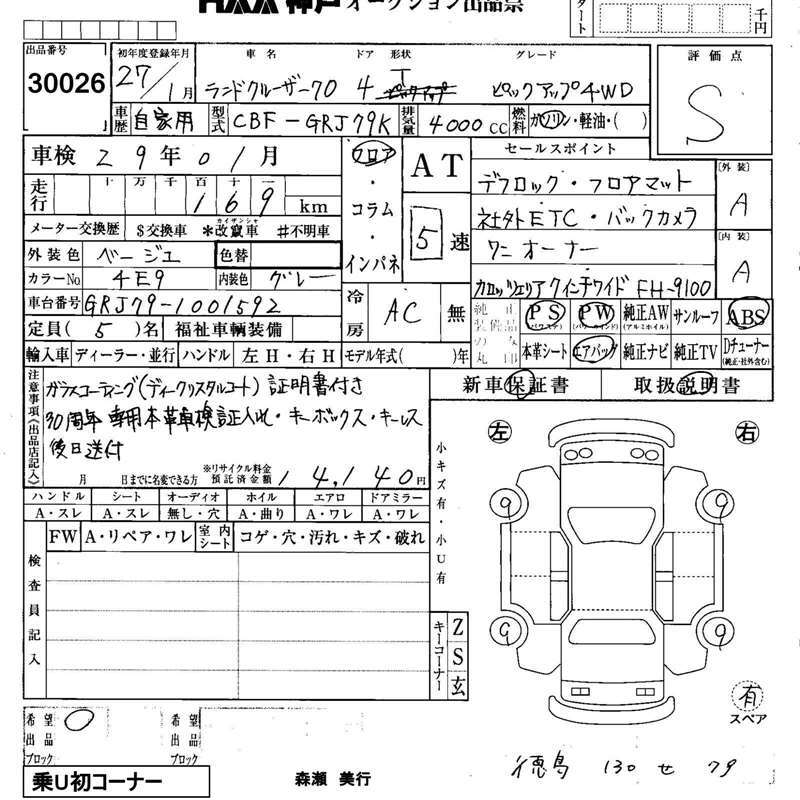 HAA神戸 オークション出品票
タート 千円
出品番号 初年度登録年月 車名 ドア 形状 グレード 評価点
30026 27/1月 ランドクルーザー70 4 T ピックアップ4WD S
車歴 自家用 型式 CBF-GRJ79K 排気量 4000cc 燃料 ガソリン・軽油・( )
車検 29年01月 フロア・コラム・インパネ AT セールスポイント
走行 十万千百十一 169 km 5速 デフロック・フロアマット [外装] A
メーター交換歴 $交換車 *改竄車(カイザンシャ) #不明車 社外ETC・バックカメラ
外装色 ベージュ 色替 ワンオーナー [内装] A
カラーNo. 4E9 内装色 グレー カロッツェリア7インチワイド FH-9100
車台番号 GRJ79-1001592 冷房 AC 無 純正装備品の丸印 PS(パワステ) PW(パワーウインド) 純正AW(アルミホイル) サンルーフ ABS
定員(5)名 福祉車輌装備 本革シート エアバッグ 純正ナビ 純正TV Dチューナー(純正・社外含む)
輸入車 ディーラー・並行 ハンドル 左H・右H モデル年式( )年
注意事項(出品店記入) ガラスコーティング(ディークリスタルコート)証明書付き 新車保証書 取扱説明書
30周年 専用本革車検証入れ・キーボックス・キーレス
後日送付
月 日までに名変できる方 ※リサイクル料金預託済金額 14,140円
ハンドル シート オーディオ ホイル エアロ ドアミラー
A・スレ A・スレ 無し・穴 A・曲り A・ワレ A・ワレ
FW A・リペア・ワレ 室内シート コゲ・穴・汚れ・キズ・破れ
検査員記入
小キズ有・小U有
左 右
9 9
9 9
キーコーナー Z S 玄
有
スペア
希望出品ブロック 希望出品ブロック
乗U初コーナー 森瀬 美行 徳島 130 せ 79